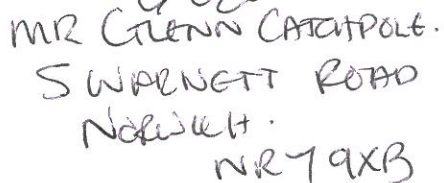 MR GLENN CATCHPOLE.
5 WARNETT ROAD
NORWICH.
NR7 9XB